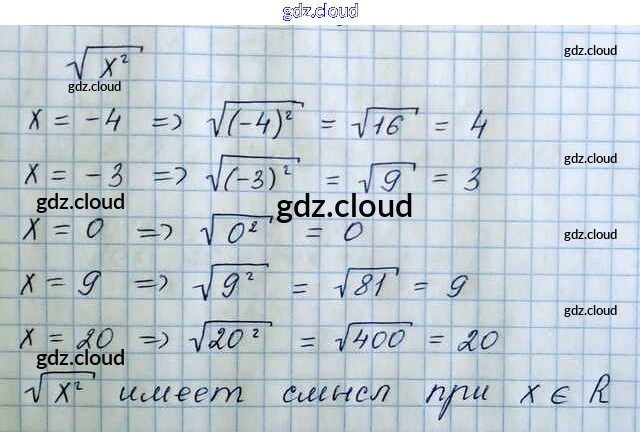 gdz.cloud
√x² gdz.cloud
gdz.cloud
x = -4 => √(-4)² = √16 = 4
x = -3 => √(-3)² = √9 = 3
gdz.cloud
gdz.cloud gdz.cloud
x = 0 => √0² = 0
gdz.cloud
x = 9 => √9² = √81 = 9
gdz.cloud
x = 20 => √20² = √400 = 20
gdz.cloud
√x² имеет смысл при x ∈ R